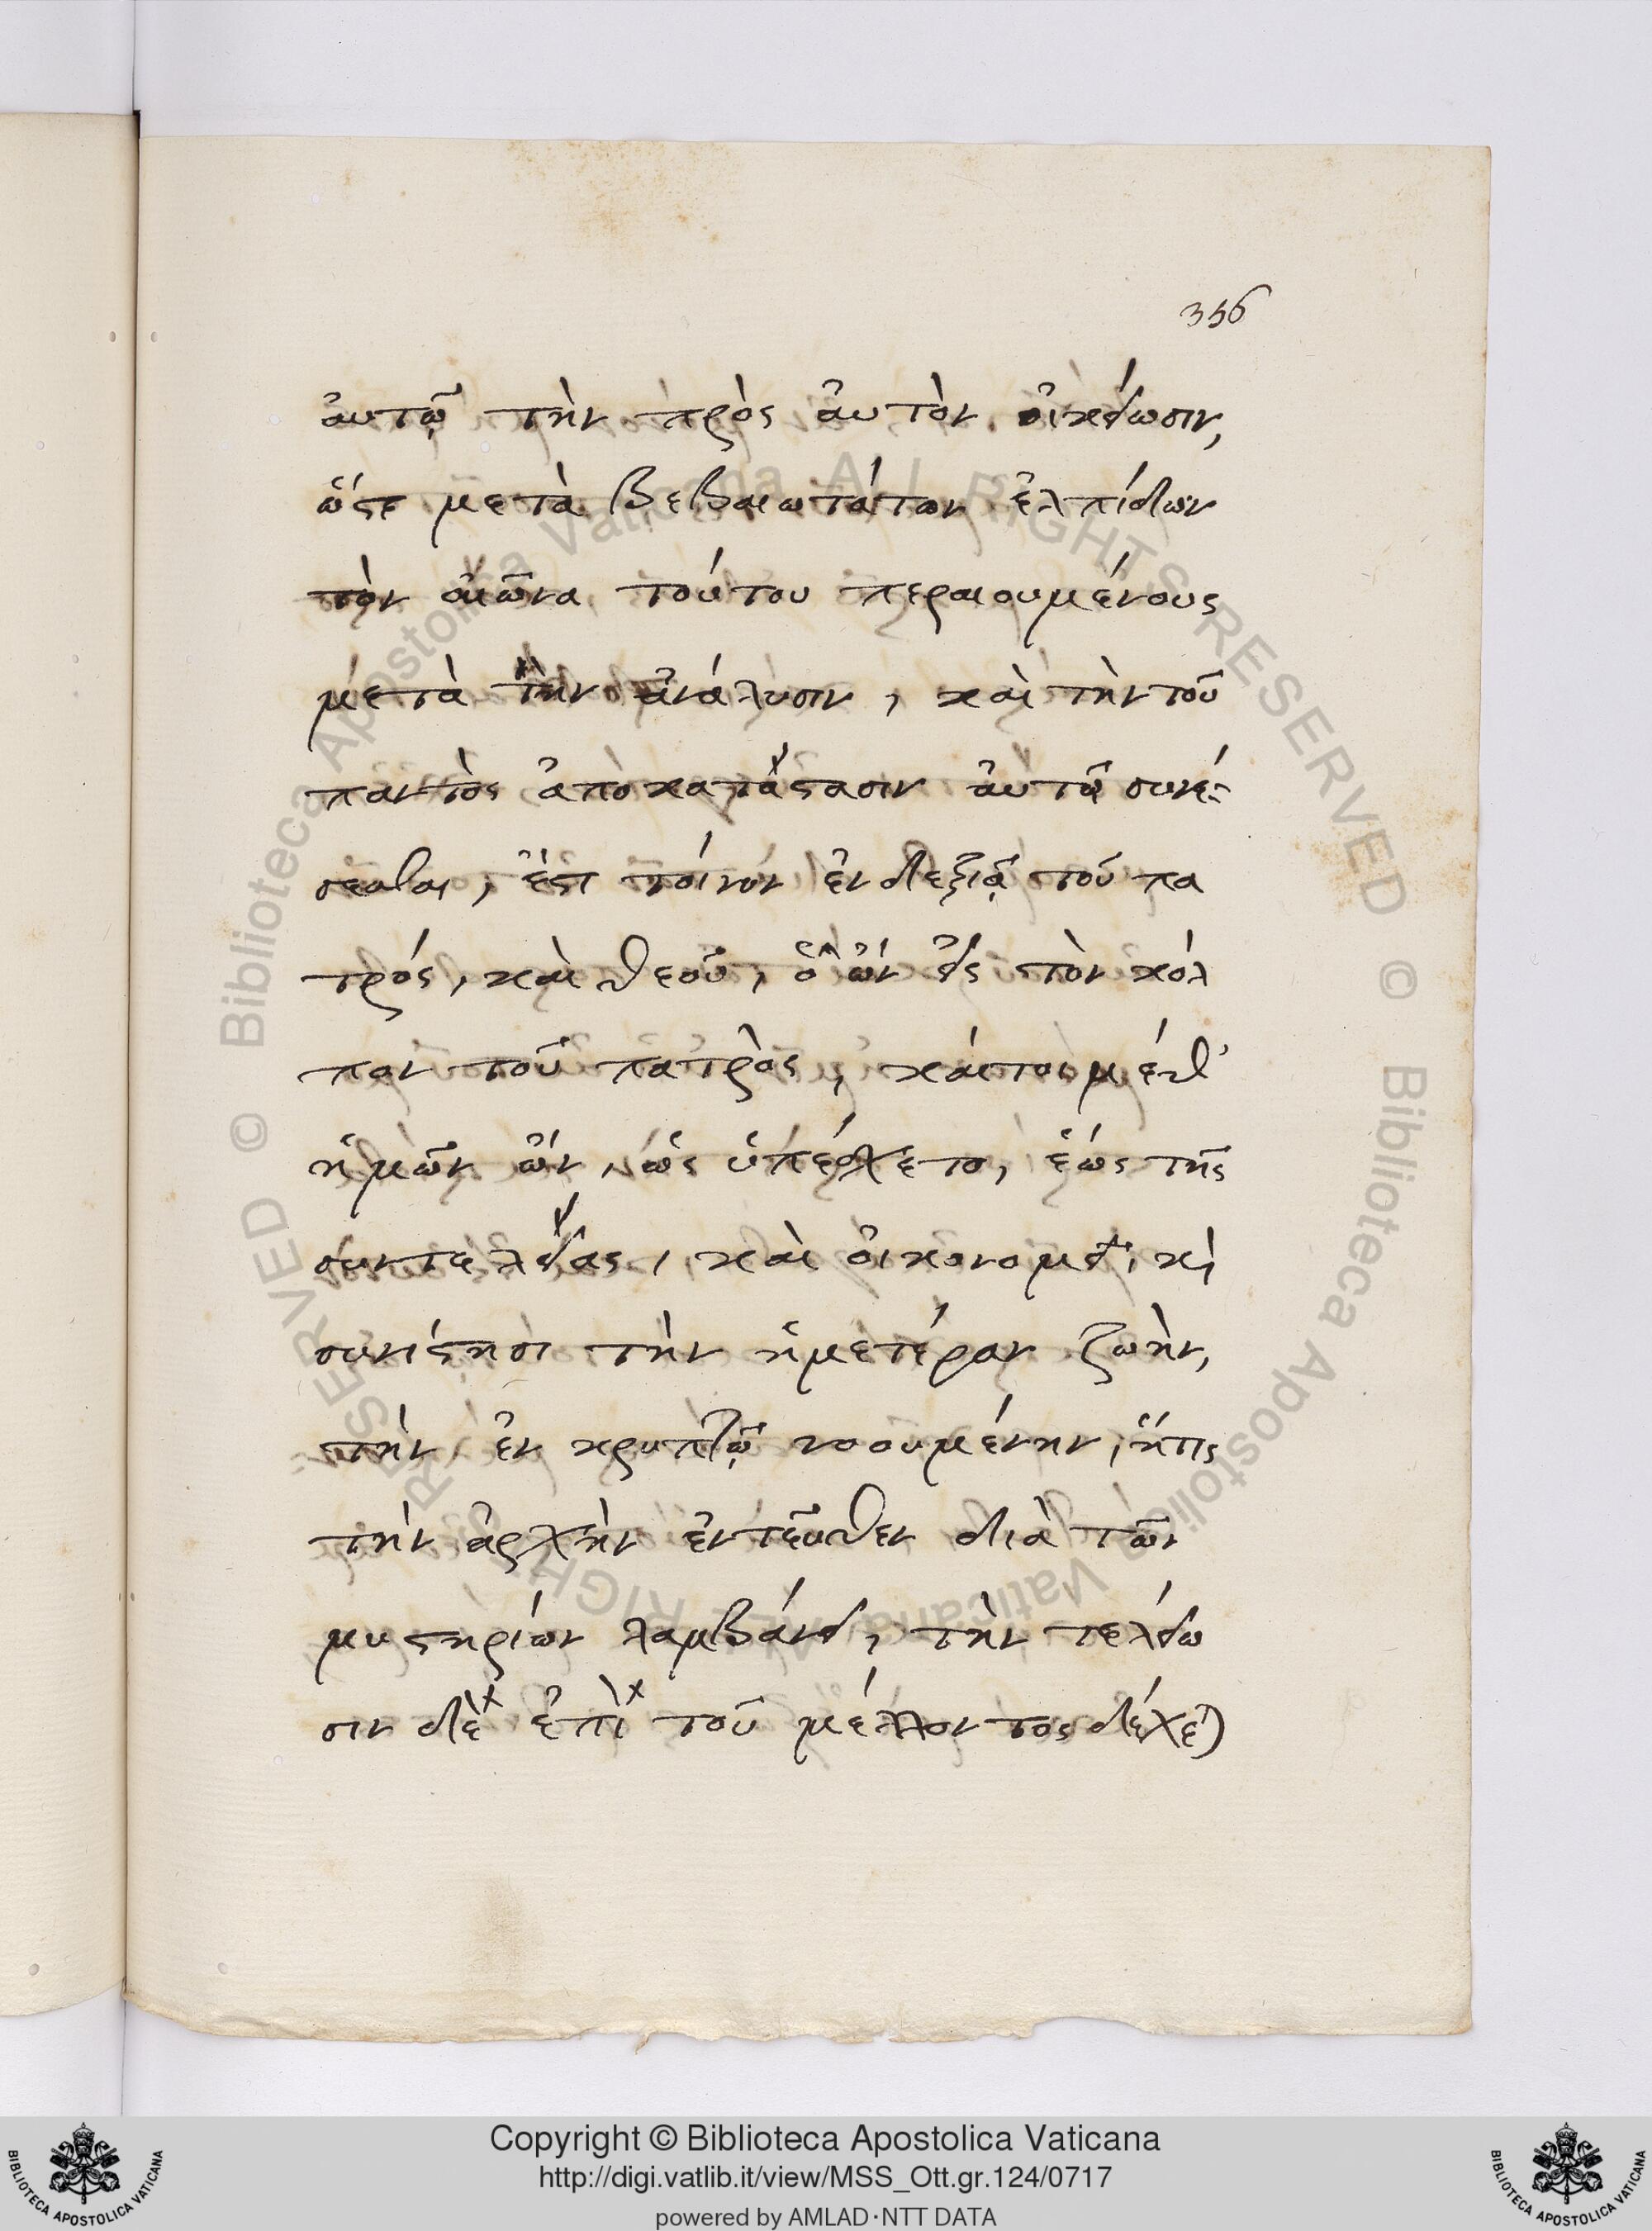 356
ἀυτῷ τὴν πρὸς ἀυτὸν οἰκείωσιν,
ὥστε μετὰ βεβαιωτάτων ἐλπίδων
τὸν αἰῶνα τούτου περαιουμένους
μετὰ τὴν ἀνάλυσιν, καὶ τὴν τοῦ
παντὸς ἀποκατάστασιν ἀυτῷ συνέ-
σεσθαι, ἔστι τοίνυν ἐν δεξιᾷ τοῦ πα
τρός, καὶ θεοῦ, ὁ ὢν εἰς τὸν κόλ
πον τοῦ πατρὸς, κάιτοι μέθ᾽
ἡμῶν ὢν, ὡς ὑπέσχετο, ἕως τῆς
συντελείας, καὶ οἰκονομεῖ, κὶ
συνίστησι τὴν ἡμετέραν ζωὴν,
τὴν ἐν κρυπτῷ νοουμένην, ἥτις
τὴν ἀρχὴν ἐντεῦθεν διὰ τῶν
μυστηρίων λαμβάνει, τὴν τελείω
σιν δὲ ἐπὶ τοῦ μέλλοντος δέχε)
Copyright © Biblioteca Apostolica Vaticana
http://digi.vatlib.it/view/MSS_Ott.gr.124/0717
powered by AMLAD·NTT DATA
BIBLIOTECA APOSTOLICA VATICANA
BIBLIOTECA APOSTOLICA VATICANA
© Biblioteca Apostolica Vaticana ALL RIGHTS RESERVED © Biblioteca Apostolica Vaticana ALL RIGHTS RESERVED